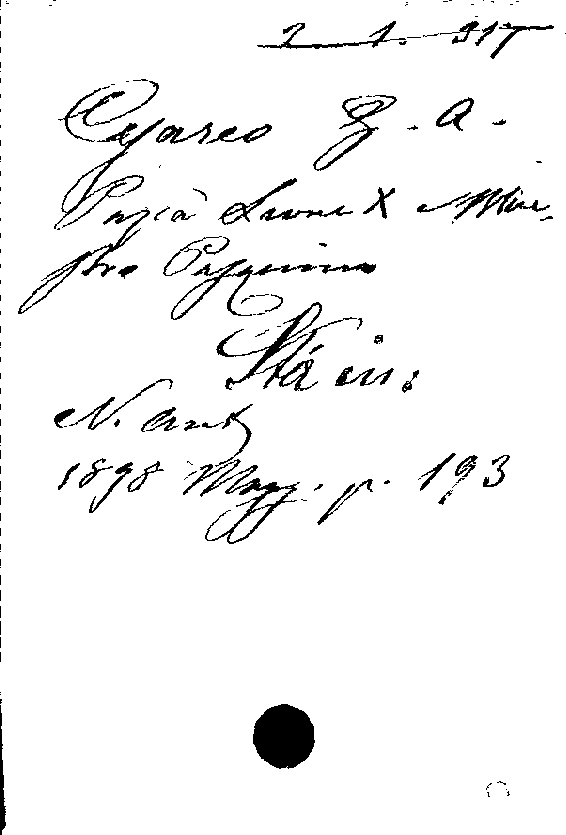 2. 1. 317
Cesareo G. A.
Papa Leone X e Mae-
stro Pasquino
Sta in:
N. Ant.
1898 Magg. p. 193